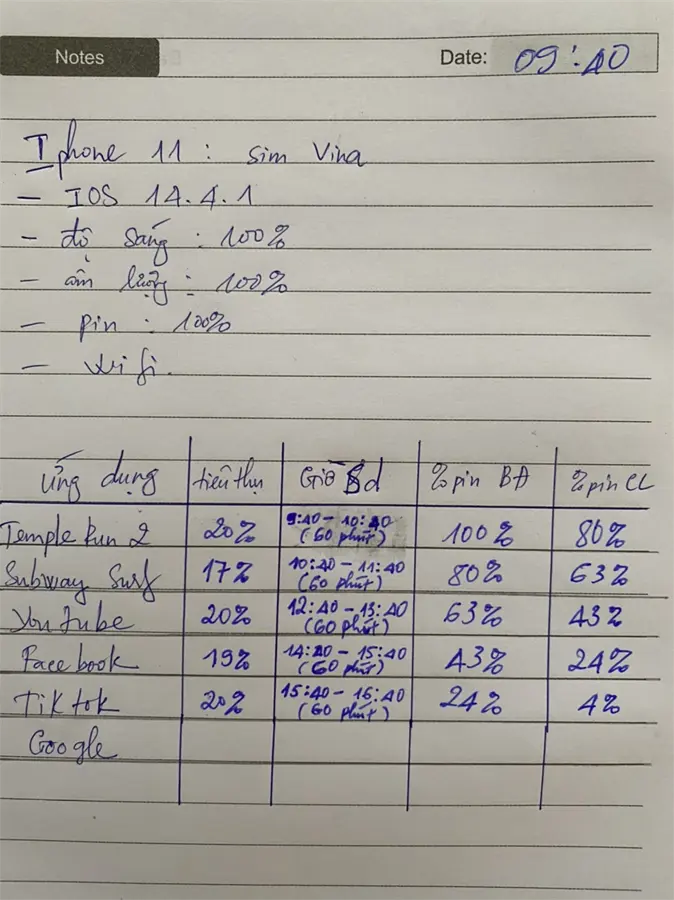 Notes Date: 09:40
Iphone 11 : sim Vina
- IOS 14.4.1
- độ sáng : 100%
- âm lượng : 100%
- pin : 100%
- wifi.
ứng dụng tiêu thụ Giờ Sd % pin BĐ % pin CL
Temple Run 2 20% 9:40 - 10:40 (60 phút) 100% 80%
Subway Surf 17% 10:40 - 11:40 (60 phút) 80% 63%
Youtube 20% 12:40 - 13:40 (60 phút) 63% 43%
Facebook 19% 14:40 - 15:40 (60 phút) 43% 24%
Tiktok 20% 15:40 - 16:40 (60 phút) 24% 4%
Google